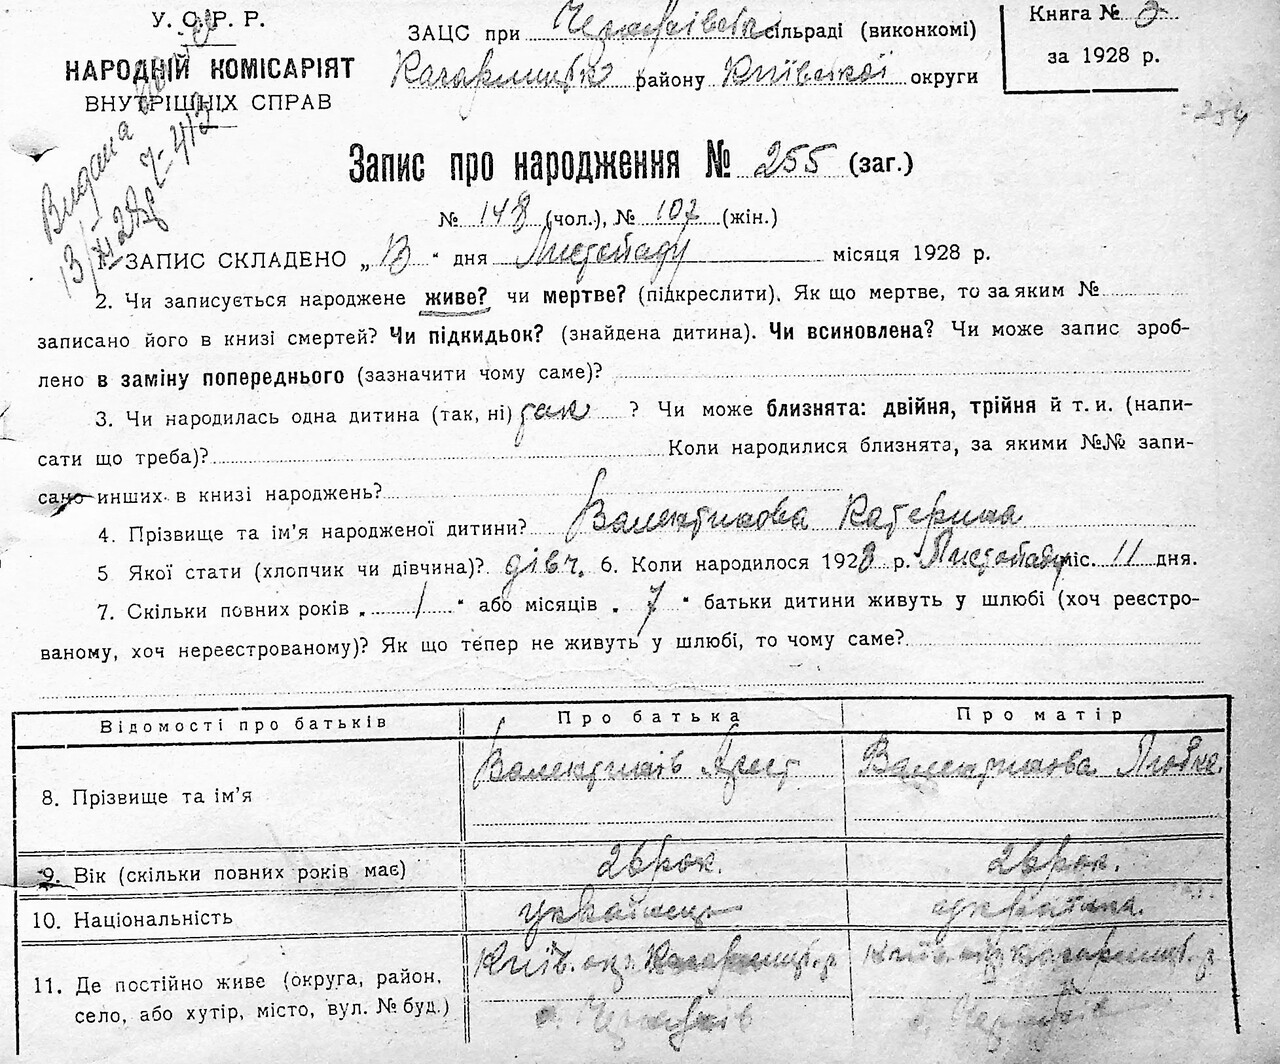 У. С. Р. Р.
НАРОДНІЙ КОМІСАРІЯТ
ВНУТРІШНІХ СПРАВ
ЗАЦС при сільраді (виконкомі)
Кагарлицьк району Київської округи
Книга № 2
за 1928 р.
254
Видана
Запис про народження № 255 (заг.)
№ 148 (чол.), № 107 (жін.)
1. ЗАПИС СКЛАДЕНО „13“ дня Листопаду місяця 1928 р.
2. Чи записується народжене живе? чи мертве? (підкреслити). Як що мертве, то за яким №
записано його в книзі смертей? Чи підкидьок? (знайдена дитина). Чи всиновлена? Чи може запис зроб-
лено в заміну попереднього (зазначити чому саме)?
3. Чи народилась одна дитина (так, ні) так ? Чи може близнята: двійня, трійня й т. и. (напи-
сати що треба)? Коли народилися близнята, за якими №№ запи-
сано инших в книзі народжень?
4. Прізвище та ім’я народженої дитини? Валентинова Катерина
5 Якої стати (хлопчик чи дівчина)? дівч. 6. Коли народилося 1928 р. Листопаду міс. 11 дня.
7. Скільки повних років „ 1 “ або місяців „ 7 “ батьки дитини живуть у шлюбі (хоч реєстро-
ваному, хоч нереєстрованому)? Як що тепер не живуть у шлюбі, то чому саме?
Відомості про батьків Про батька Про матір
8. Прізвище та ім’я Валентинів Валентинова
9. Вік (скільки повних років має) 26 рок. 26 рок.
10. Національність українець українка.
11. Де постійно живе (округа, район, Київ. окр. Кагарлицьк. р. Київ. окр. Кагарлицьк. р.
село, або хутір, місто, вул. № буд.) с. с.